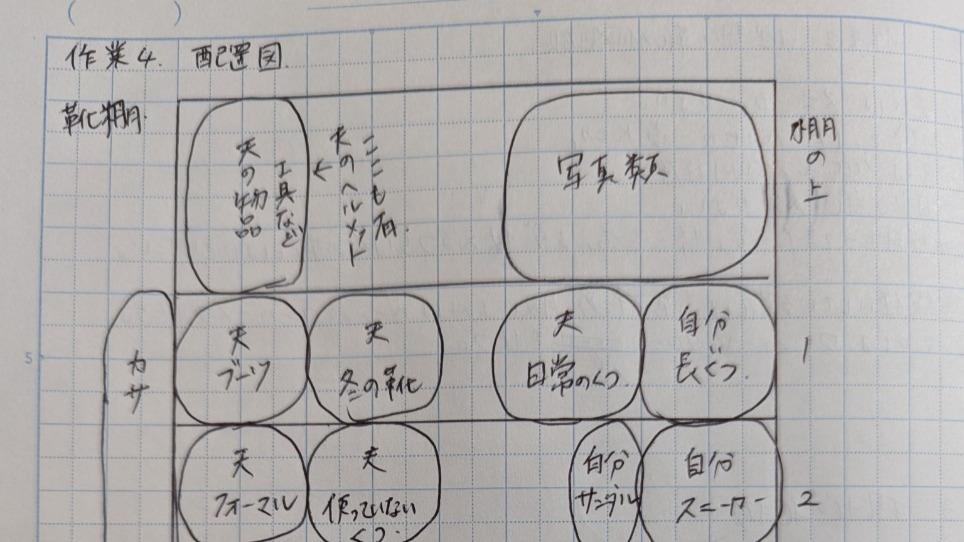 作業4. 配置図.
靴棚.
夫の物品
工具など
←ここも有.
夫のヘルメット
写真類
棚の上
カサ
夫
ブーツ
夫
冬の靴
夫
日常のくつ.
自分
長ぐつ.
1
夫
フォーマル
夫
使っていない
くつ.
自分
サンダル
自分
スニーカー
2
5